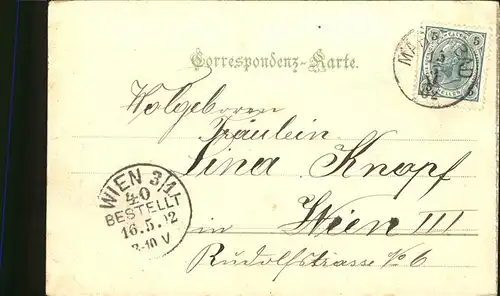 Correspondenz-Karte.
5 5
MA
Wolgeboren
Fräulein
Lina Knopf
in Wien III
Rudolfstrasse No 6
WIEN 3/1
40
BESTELLT
16.5.02
8-10 V